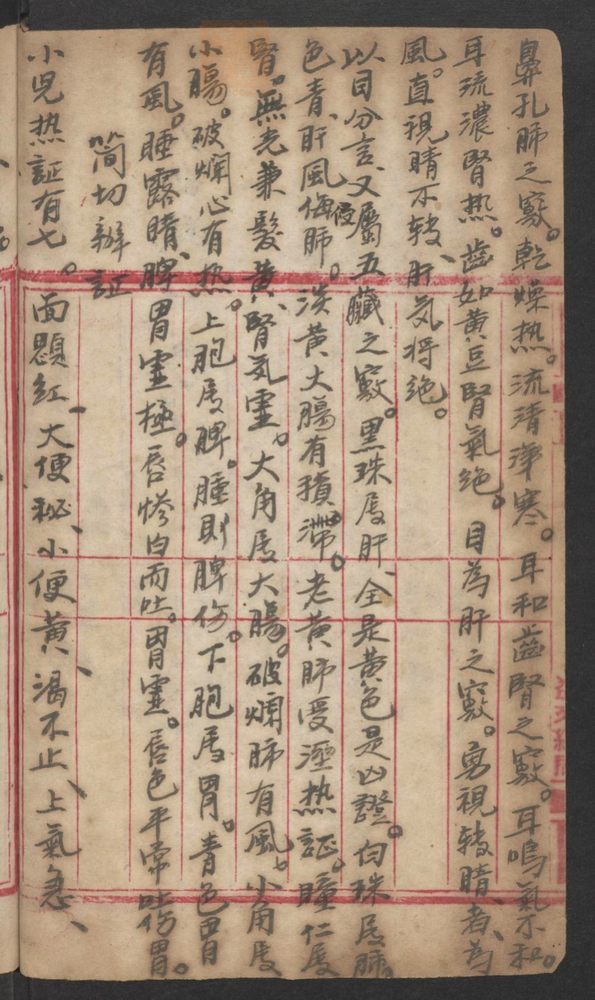 鼻孔肺之竅。乾燥热。流清涕寒。耳和齒腎之竅。耳鳴氣不和。
耳琉濃腎热。齒如黄豆腎氣绝。目為肝之竅。勇視轉睛者、為
風。直視睛不转、肝気将绝。
以目分言、又屬五臟之竅。黑珠属肝、全是黄色是凶證。白珠属肺。
色青、肝風侮肺。淡黄大腸有積滯。老黄肺受溼热証。瞳仁属
腎。無光兼髮黄、腎気虚。大角属大腸。破爛肺有風。小角属
小腸。破爛心有热。上胞属脾。腫則脾伤。下胞属胃。青色胃
有風。睡露睛、脾胃虚極。唇惨白而吐。胃虚。唇色平常吐伤胃。
简切辦証
小児热証有七。面顋紅、大便秘、小便黄、渴不止、上氣急、